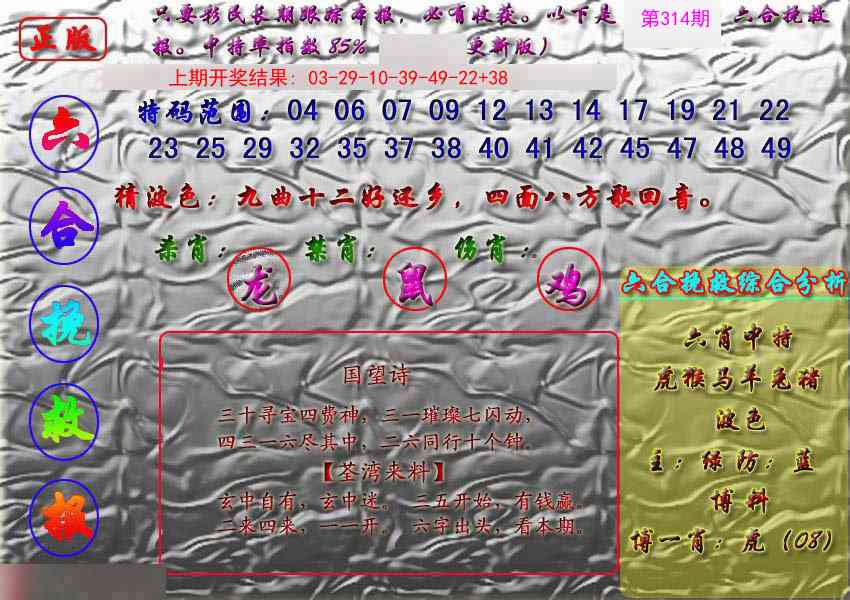 正版
只要彩民长期跟踪本报，必有收获。以下是
第314期
六合挽救
报。中特率指数85%
更新版）
上期开奖结果：03-29-10-39-49-22+38
六合挽救报
特码范围：04 06 07 09 12 13 14 17 19 21 22
23 25 29 32 35 37 38 40 41 42 45 47 48 49
猜波色：九曲十二好还乡，四面八方歌回音。
亲肖：龙
禁肖：鼠
伤肖：鸡
国望诗
三十寻宝四赏神，三一璀璨七闪动，
四三一六尽其中，二六同行十个钟。
【荃湾来料】
玄中自有，玄中迷。 三五开始，有钱赢。
二来四来，一一开。 六字出头，看本期。
六合挽救综合分析
六肖中特
虎猴马羊兔猪
波色
主：绿防：蓝
博料
博一肖：虎（08）